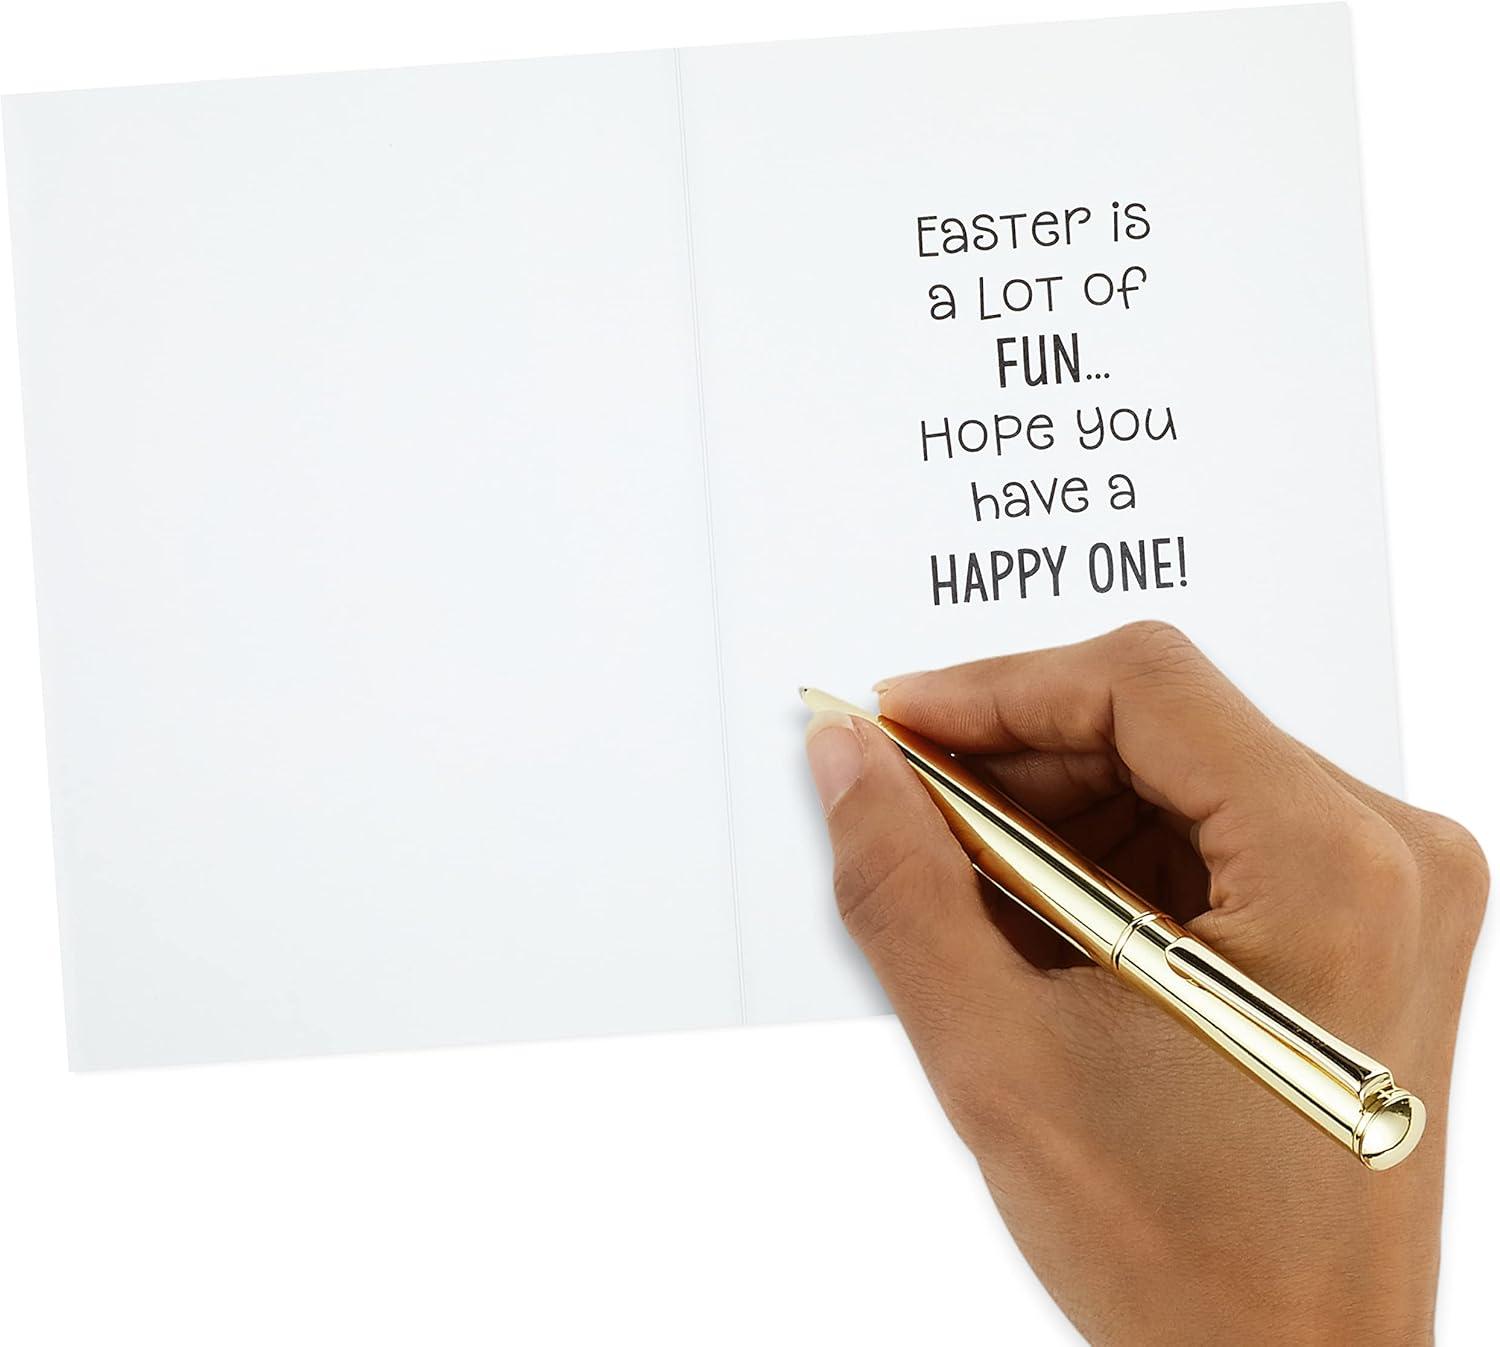 Easter is
a Lot of
FUN...
Hope you
have a
HAPPY ONE!